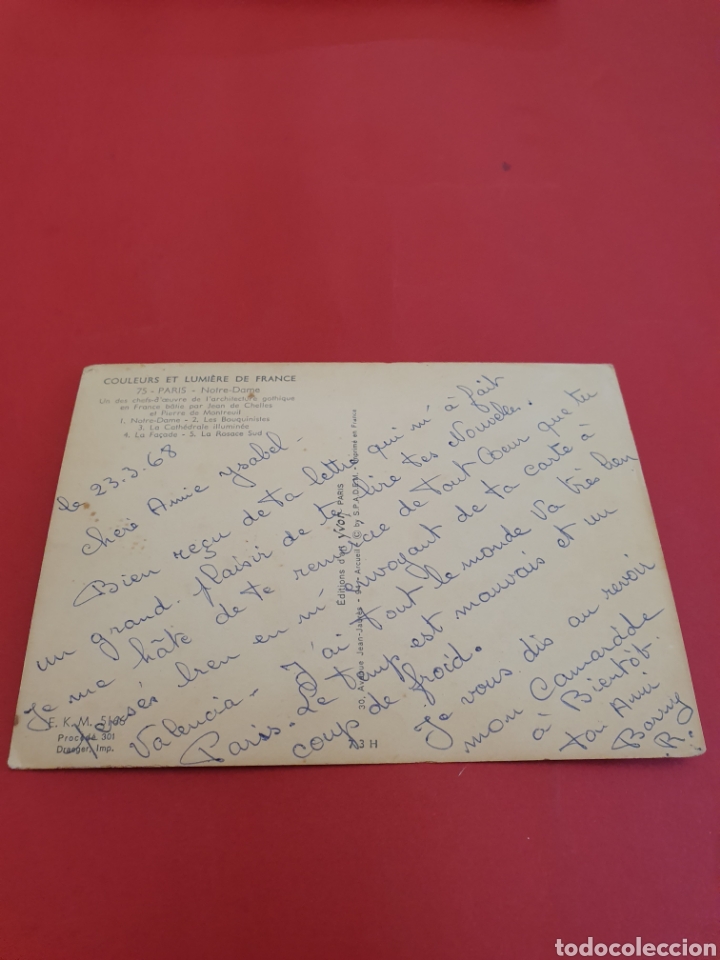 COULEURS ET LUMIÈRE DE FRANCE
75 - PARIS - Notre-Dame
Un des chefs-d'œuvre de l'architecture gothique
en France bâtie par Jean de Chelles
et Pierre de Montreuil
1. Notre-Dame - 2. Les Bouquinistes
3. La Cathédrale illuminée
4. La Façade - 5. La Rosace Sud
le 23.3.68
Chère Amie Ysabel -
Bien reçu de ta lettre qui m'à fait
un grand plaisir de te lire tes Nouvelles.
Je me hâte de te remercie de tout Cœur que tu
bien en m'envoyant de ta carte à
Valencia - J'ai tout le monde va très bien
Paris. Le temps est mauvais et un
coup de froid.
Je vous dis au revoir
mon Camarade
à Bientôt.
ton Ami
R.
Éditions d'art yvon PARIS
30, Avenue Jean-Jaurès - 94 - Arcueil © by S.P.A.D.E.M. - Imprimé en France
E. K. M.
Procédé 301
Draeger, Imp.
H
todocoleccion